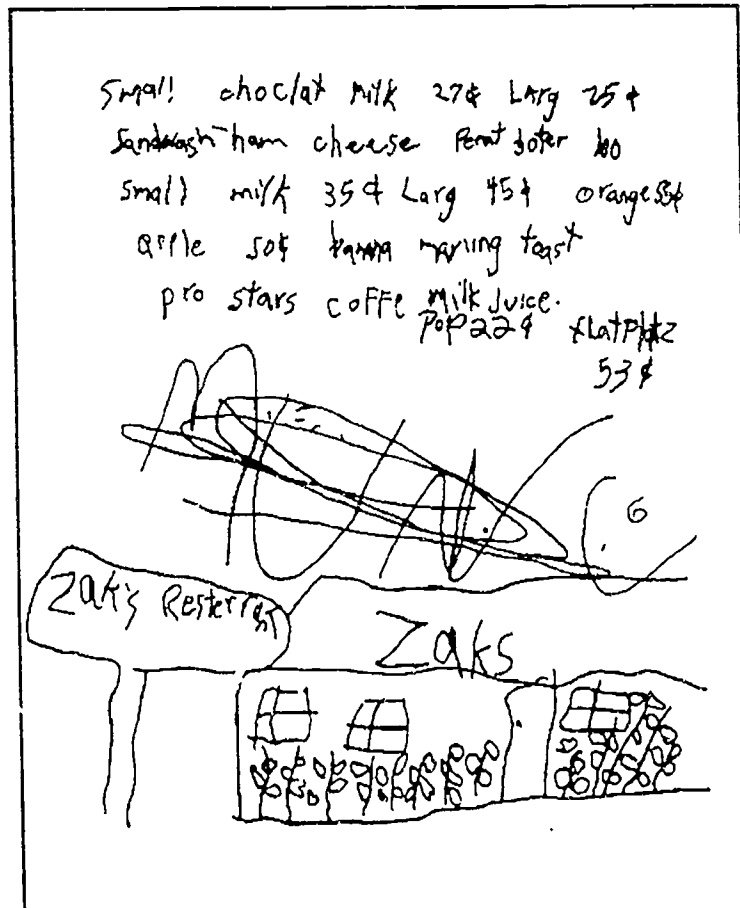 small choclat milk 27¢ Larg 25¢
sandwash ham cheese Penat boter
small milk 35¢ Larg 45¢ orange 55¢
apple 50¢ toast
pro stars coffe milk Juice.
Pop 22¢
53¢
6
Zak's Resterrast
Zaks